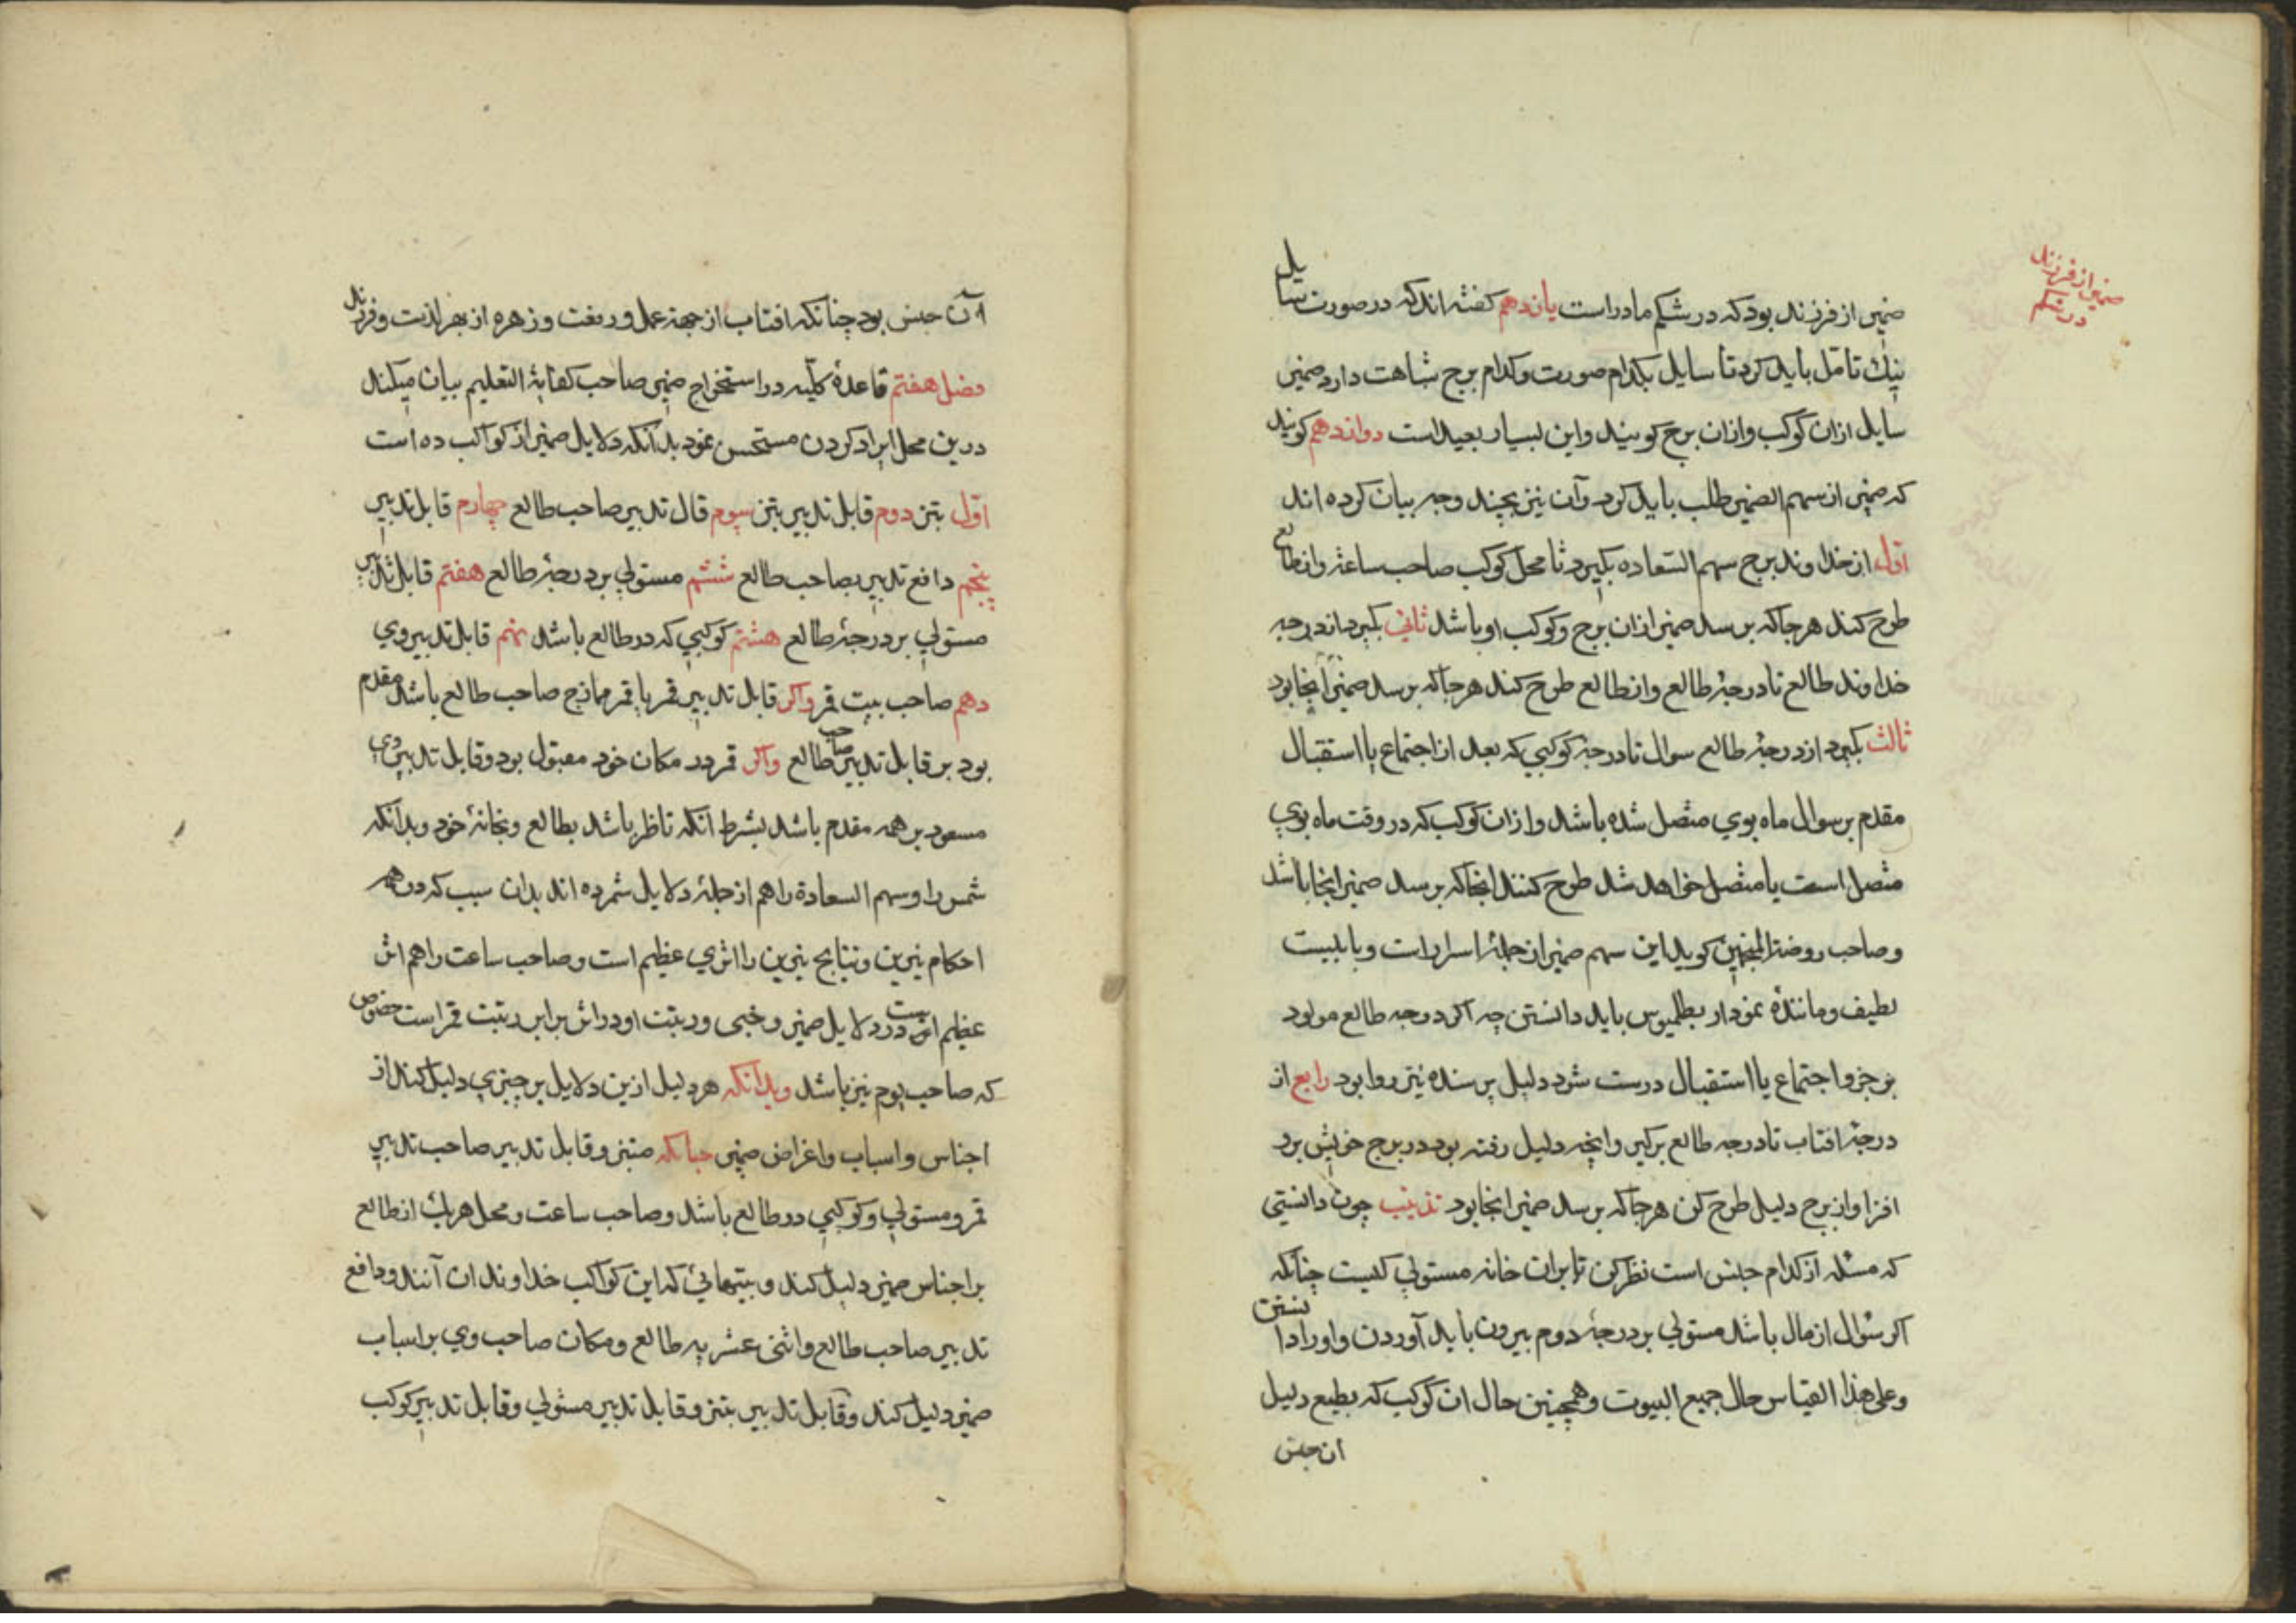 ضمیر از فرزند
در شکم
ضمیر از فرزند بود که در شکم مادر است یازدهم کفته اند که در صورت سایل
نیک تامل باید کرد تا سایل بکدام صورت وکدام برج شباهت دارد ضمیر
سایل ازان کوکب وازان برج کویند واین بسیار بعید است دوازدهم کویند
که ضمیر از سهم الضمیر طلب باید کرد وآن نیز بچند وجه بیان کرده اند
اول از خداوند برج سهم السعاده بکیرد تا محل کوکب صاحب ساعة واز طالع
طرح کند هر جا که برسد ضمیر ازان برج وکوکب او باشد ثانی بکیرد از درجه
خداوند طالع تا درجۀ طالع واز طالع طرح کند هر جا که برسد ضمیر آنجا بود
ثالث بکیرد از درجۀ طالع سوال تا درجۀ کوکبی که بعد از اجتماع یا استقبال
مقدم بر سوال ماه بوی متصل شده باشد وازان کوکب که در وقت ماه بوی
متصل است یا متصل خواهد شد طرح کنند انجا که برسد ضمیر انجا باشد
وصاحب روضة المنجمین کوید این سهم ضمیر از جملۀ اسرار است وبابیست
لطیف ومانندۀ نمودار بطلمیوس باید دانستن چه اکر درجه طالع مولود
بر جزو اجتماع یا استقبال درست شود دلیل پرسنده نیز روا بود رابع از
درجۀ افتاب تا درجه طالع برکیر وانچه دلیل رفته بود در برج خویش برو
افزا واز برج دلیل طرح کن هر جا که برسد ضمیر انجا بود تذنیب چون دانستی
که مسئله از کدام جنس است نظر کن تا بران خانه مستولی کیست چنانکه
اکر سوال از مال باشد مستولی بر درجۀ دوم بیرون باید آوردن واو را دانستن
وعلی هذا القیاس حال جمیع البیوت وهمچنین حال ان کوکب که بطبع دلیل
ان جنس
آن جنس بود چنانکه افتاب از جهة عمل ورفعت وزهره از بهر لذت وفرزند
فصل هفتم قاعدۀ کلّیه در استخراج ضمیر صاحب کفایة التعلیم بیان میکند
درین محل ایراد کردن مستحسن نمود بدانکه دلایل ضمیر از کواکب ده است
اول مبتز دوم قابل تدبیر مبتز سیوم قابل تدبیر صاحب طالع چهارم قابل تدبیر
پنجم دافع تدبیر بصاحب طالع ششم مستولی بر درجۀ طالع هفتم قابل تدبیر
مستولی بر درجۀ طالع هشتم کوکبی که در طالع باشد نهم قابل تدبیر وی
دهم صاحب بیت قمر واکر قابل تدبیر قمر یا قمر ممازج صاحب طالع باشد مقدم
بود بر قابل تدبیر صاحب طالع واکر قمر در مکان خود مقبول بود وقابل تدبیر وی
مسعود بر همه مقدم باشد بشرط آنکه ناظر باشد بطالع وبخانۀ خود وبدانکه
شمس را وسهم السعادة را هم از جملۀ دلایل شمرده اند بدان سبب که در همه
احکام نیرین ونتایج نیرین را اثری عظیم است وصاحب ساعت را هم اثر
عظیم است در دلایل ضمیر وخبی ورتبت او در اثر برابر رتبت قمر است خصوص
که صاحب یوم نیز باشد وبدانکه هر دلیل ازین دلایل بر چیزی دلیل کند از
اجناس واسباب واغراض ضمیر چنانکه مبتز وقابل تدبیر صاحب تدبیر
قمر ومستولی وکوکبی در طالع باشد وصاحب ساعت ومحل هریک از طالع
بر اجناس ضمیر دلیل کند وبیتهائی که این کواکب خداوندان آنند ودافع
تدبیر صاحب طالع واثنی عشریه طالع ومکان صاحب وی بر اسباب
ضمیر دلیل کند وقابل تدبیر مبتز وقابل تدبیر مستولی وقابل تدبیر کوکب